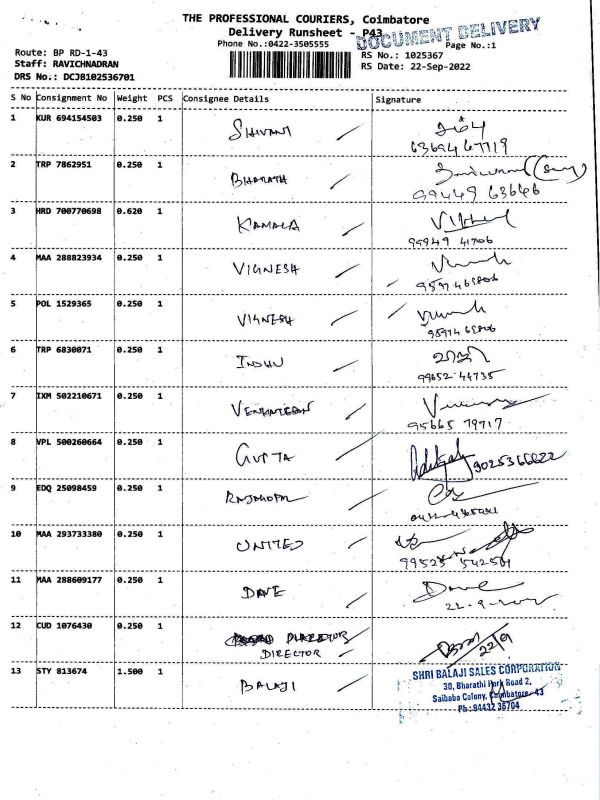 THE PROFESSIONAL COURIERS, Coimbatore
Delivery Runsheet - P43
DOCUMENT DELIVERY
Phone No.:0422-3505555
Page No.:1
Route: BP RD-1-43
RS No.: 1025367
Staff: RAVICHNADRAN
RS Date: 22-Sep-2022
DRS No.: DCJB102536701
S No Consignment No Weight PCS Consignee Details Signature
1 KUR 694154503 0.250 1 SHIVANI
63694 67719
2 TRP 7862951 0.250 1 BHARATH
99449 63646
3 HRD 700770698 0.620 1 KAMALA
99949 41706
4 MAA 288823934 0.250 1 VIGNESH
5 POL 1529365 0.250 1 VIGNESH
6 TRP 6830071 0.250 1 INDHU
99652 44735
7 IXM 502210671 0.250 1 VENKATESAN
95665 79717
8 VPL 500260664 0.250 1 GUPTA
9 EDQ 25098459 0.250 1 RAJAGOPAL
10 MAA 293733380 0.250 1 UNITED
99525 542501
11 MAA 288609177 0.250 1 DAVE Dave
12 CUD 1076430 0.250 1 DIRECTOR
DIRECTOR 22/9
13 STY 813674 1.500 1 BALAJI
SHRI BALAJI SALES CORPORATION
30, Bharathi Park Road 2,
Saibaba Colony, Coimbatore- 43
Ph : 94432 36704